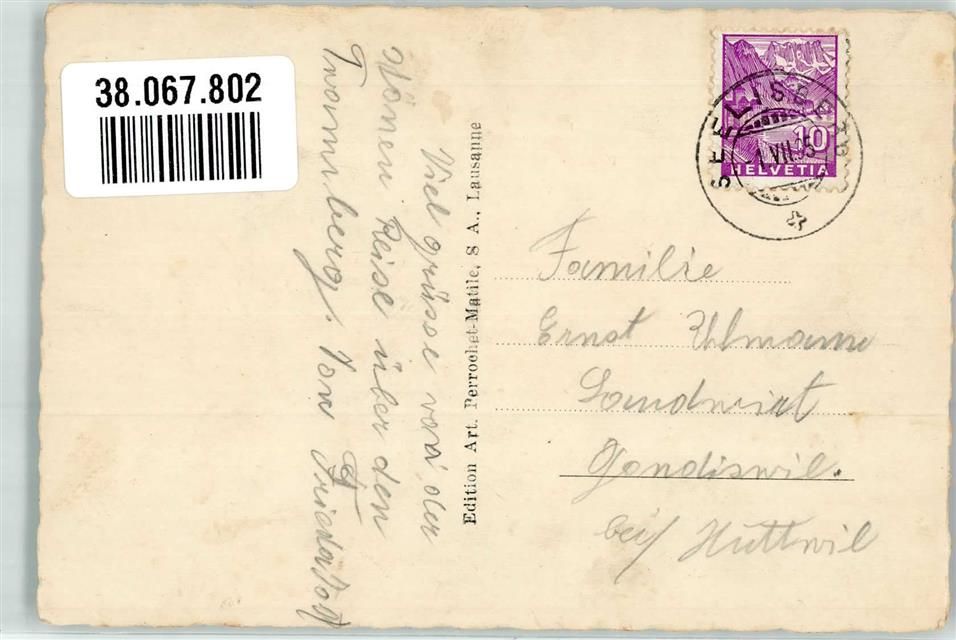 38.067.802
SEELISBERG
1.VII.35
10
HELVETIA
Viel grüsse von der
schönen Reise über den
Edition Art. Perrochet-Matile, S A., Lausanne
Familie
Ernst Uhlmann
Landwirt
Gondiswil.
bei Huttwil